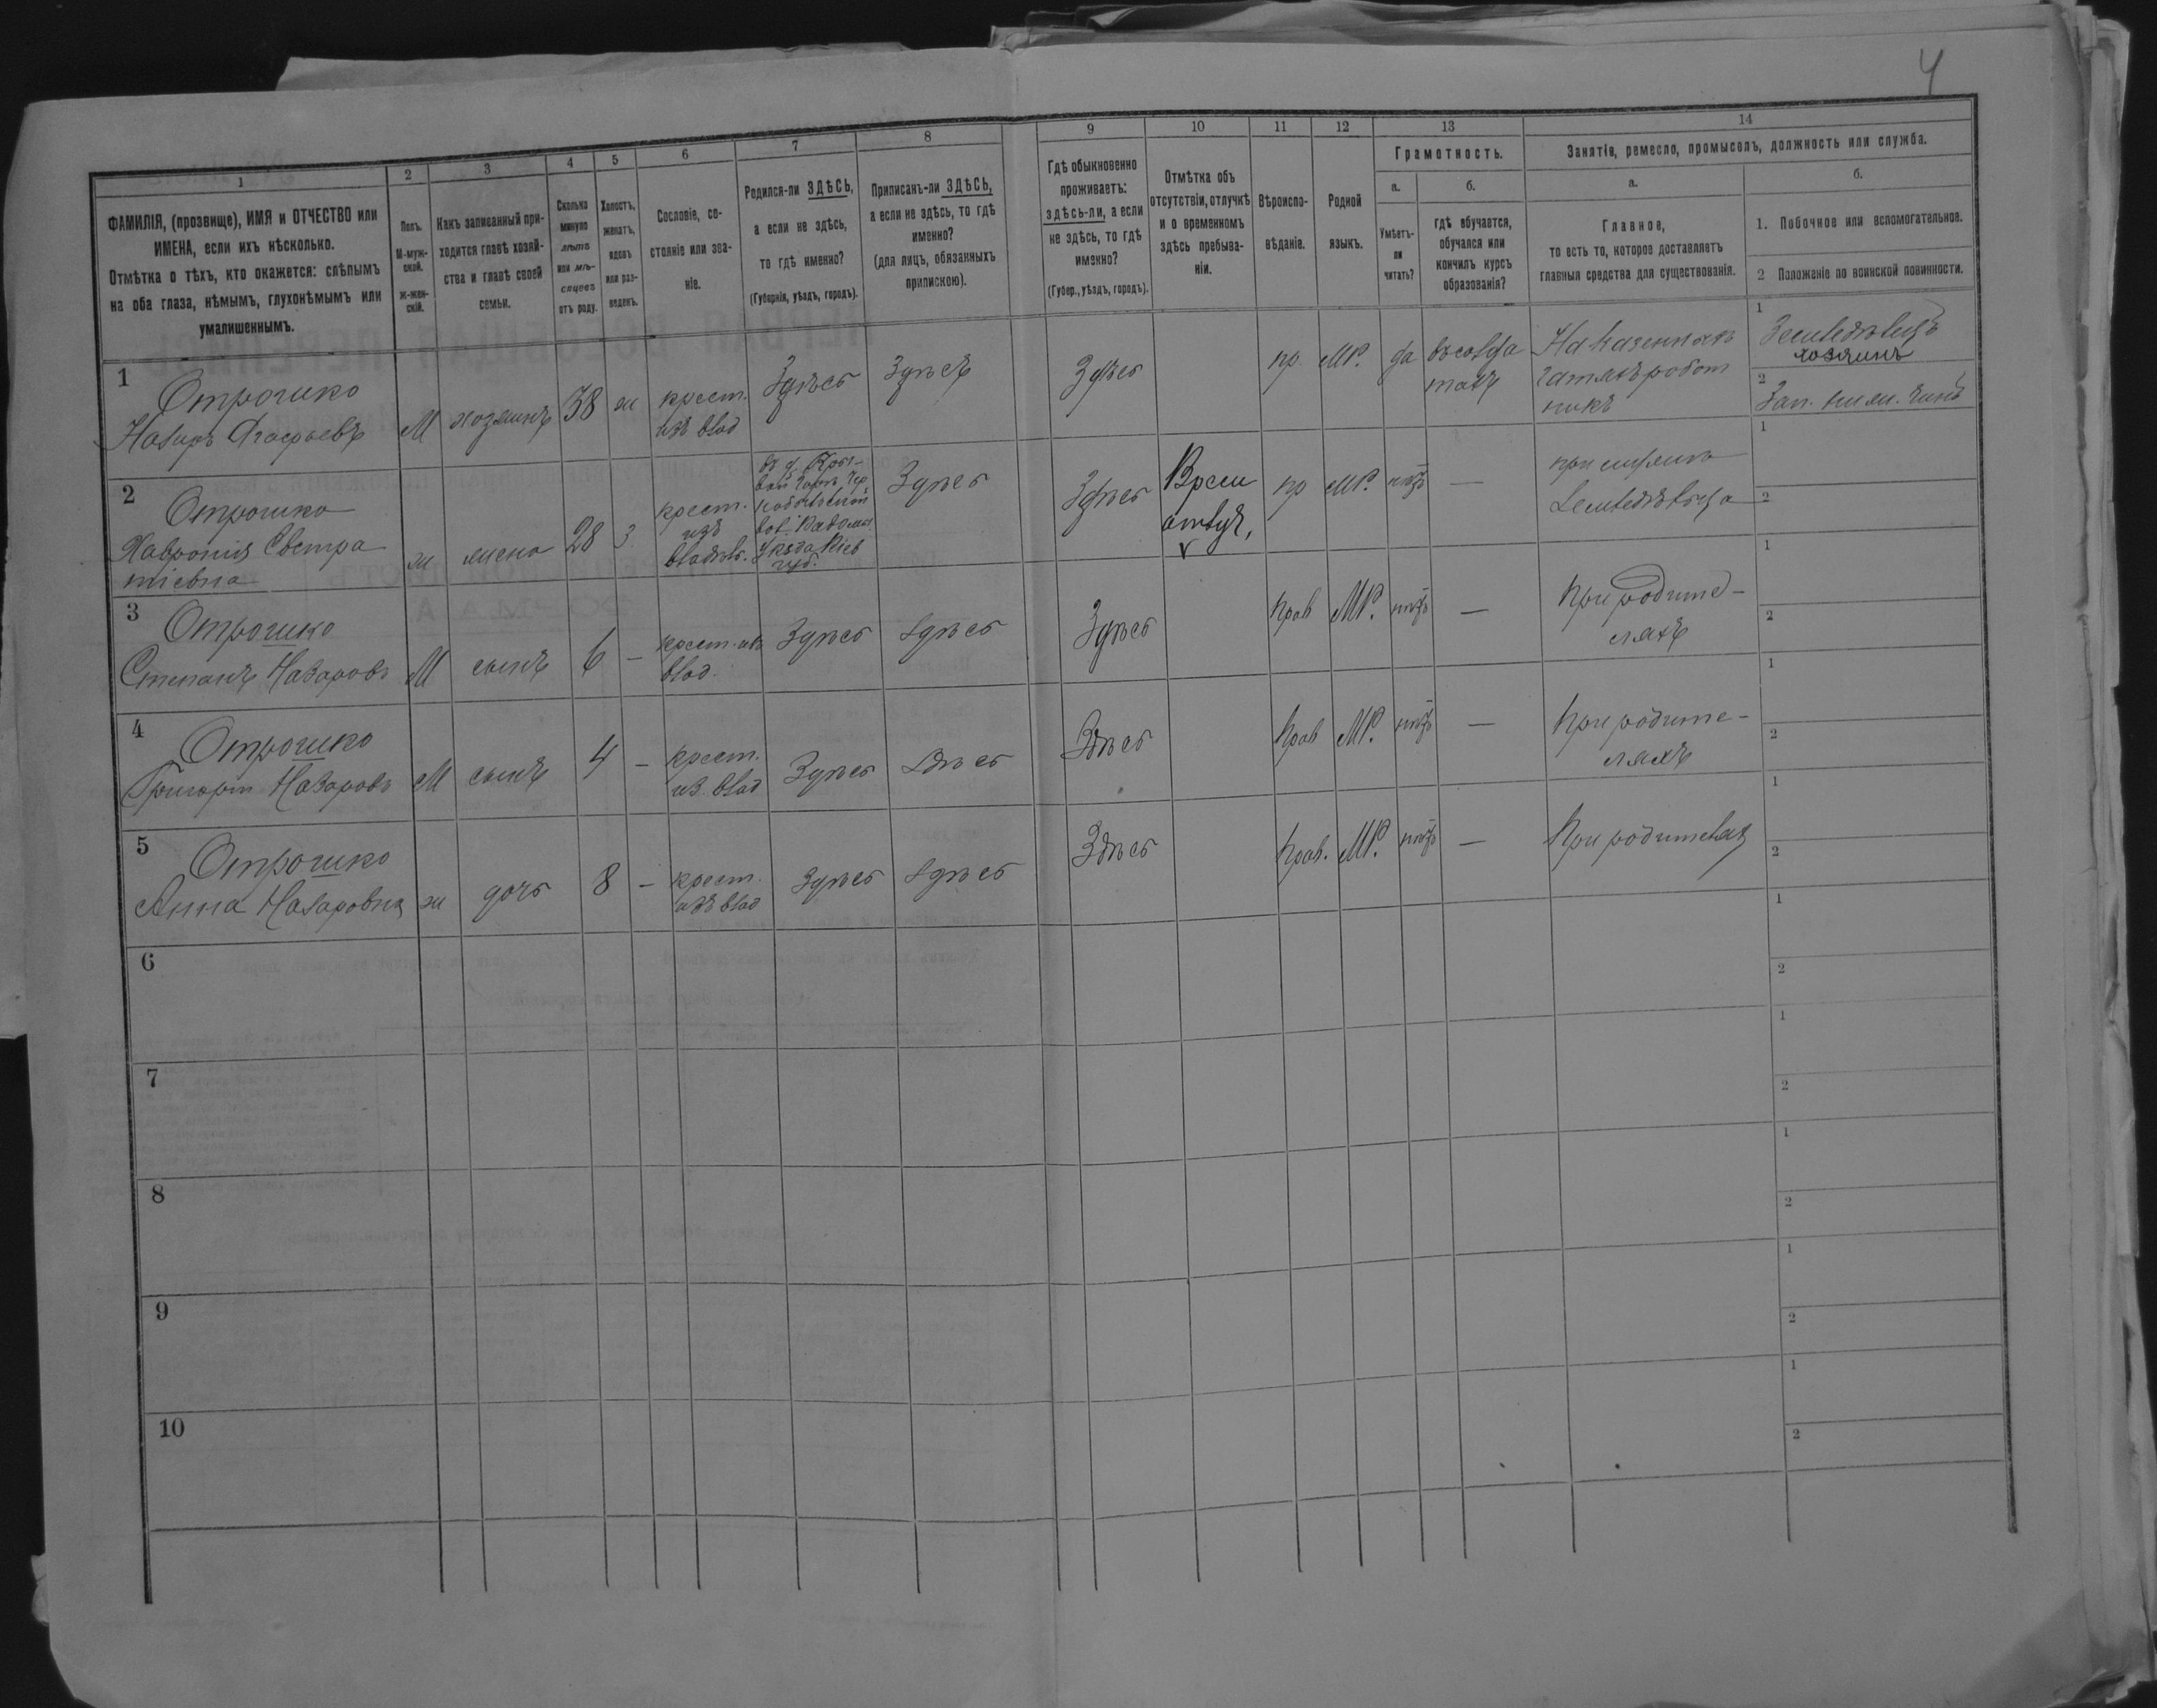 4
1
2
3
4
5
6
7
8
9
10
11
12
13
14
ФАМИЛІЯ, (прозвище), ИМЯ и ОТЧЕСТВО или
ИМЕНА, если ихъ нѣсколько.
Отмѣтка о тѣхъ, кто окажется: слѣпымъ
на оба глаза, нѣмымъ, глухонѣмымъ или
умалишеннымъ.
Полъ.
М-муж-
ской.
Ж-жен-
скій.
Какъ записанный при-
ходится главѣ хозяй-
ства и главѣ своей
семьи.
Сколько
минуло
лѣтъ
или мѣ-
сяцевъ
отъ роду.
Холостъ,
женатъ,
вдовъ
или раз-
веденъ.
Сословіе, со-
стояніе или зва-
ніе.
Родился-ли ЗДѢСЬ,
а если не здѣсь,
то гдѣ именно?
(Губернія, уѣздъ, городъ).
Приписанъ-ли ЗДѢСЬ,
а если не здѣсь, то гдѣ
именно?
(для лицъ, обязанныхъ
припискою).
Гдѣ обыкновенно
проживаетъ:
здѣсь-ли, а если
не здѣсь, то гдѣ
именно?
(Губер., уѣздъ, городъ).
Отмѣтка объ
отсутствіи, отлучкѣ
и о временномъ
здѣсь пребыва-
ніи.
Вѣроиспо-
вѣданіе.
Родной
языкъ.
Грамотность.
а.
Умѣетъ-
ли
читать?
б.
гдѣ обучается,
обучался или
кончилъ курсъ
образованія?
Занятія, ремесло, промыселъ, должность или служба.
а.
Главное,
то есть то, которое доставляетъ
главныя средства для существованія.
б.
1. Побочное или вспомогательное.
2 Положеніе по воинской повинности.
1
Отрошко
Назаръ
М
хозяинъ
38
ж
крест.
изъ влад
Здѣсь
Здѣсь
Здѣсь
пр
МР.
да
въ солда
тахъ
На казенныхъ
работ
никъ
1
Земледѣлецъ
хозяинъ
2
Зап. чинъ
2
Отрошко
Хавронія
ж
жена
28
З
крест.
изъ
владѣл.
Уѣзда Кіев
губ.
Здѣсь
Здѣсь
Врем
отлуч.
V
пр
МР.
нѣтъ
—
при
Земледѣльца
1
2
3
Отрошко
Степанъ Назаровъ
М
сынъ
6
—
крест. изъ
влад.
Здѣсь
Здѣсь
Здѣсь
Прав
МР.
нѣтъ
—
При родите-
ляхъ
1
2
4
Отрошко
Григорій Назаровъ
М
сынъ
4
—
крест.
из. влад
Здѣсь
Здѣсь
Здѣсь
Прав
МР.
нѣтъ
—
При родите-
ляхъ
1
2
5
Отрошко
Анна Назаровна
ж
дочь
8
—
крест.
изъ влад
Здѣсь
Здѣсь
Здѣсь
Прав.
МР.
нѣтъ
—
При родителях
1
2
6
1
2
7
1
2
8
1
2
9
1
2
10
1
2